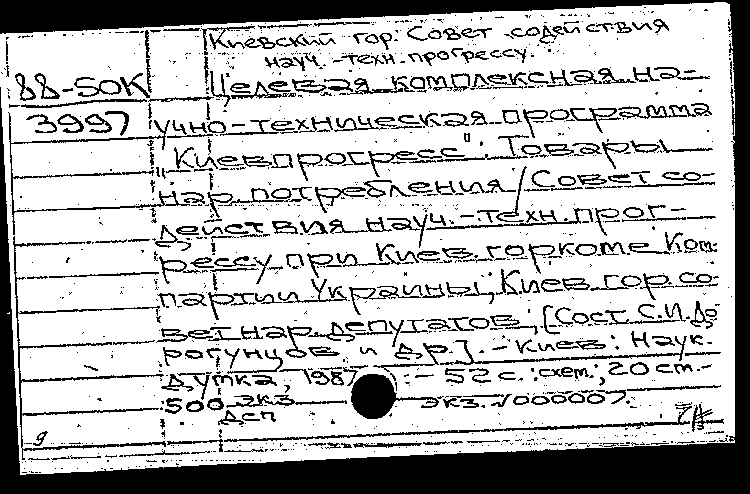 Киевский гор. Совет содействия
науч.-техн. прогрессу.
88-50К
Целевая комплексная на-
3997
учно-техническая программа
"Киевпрогресс": Товары
нар. потребления / Совет со-
действия науч.-техн. прог-
рессу при Киев. горкоме Ком-
партии Украины, Киев. гор. со-
вет нар. депутатов; [Сост. С.И. До-
рогунцов и др.]. - Киев: Наук.
думка, 1987. - 52 с.: схем.; 20 см. -
500 экз.
экз. №000007.
ДСП